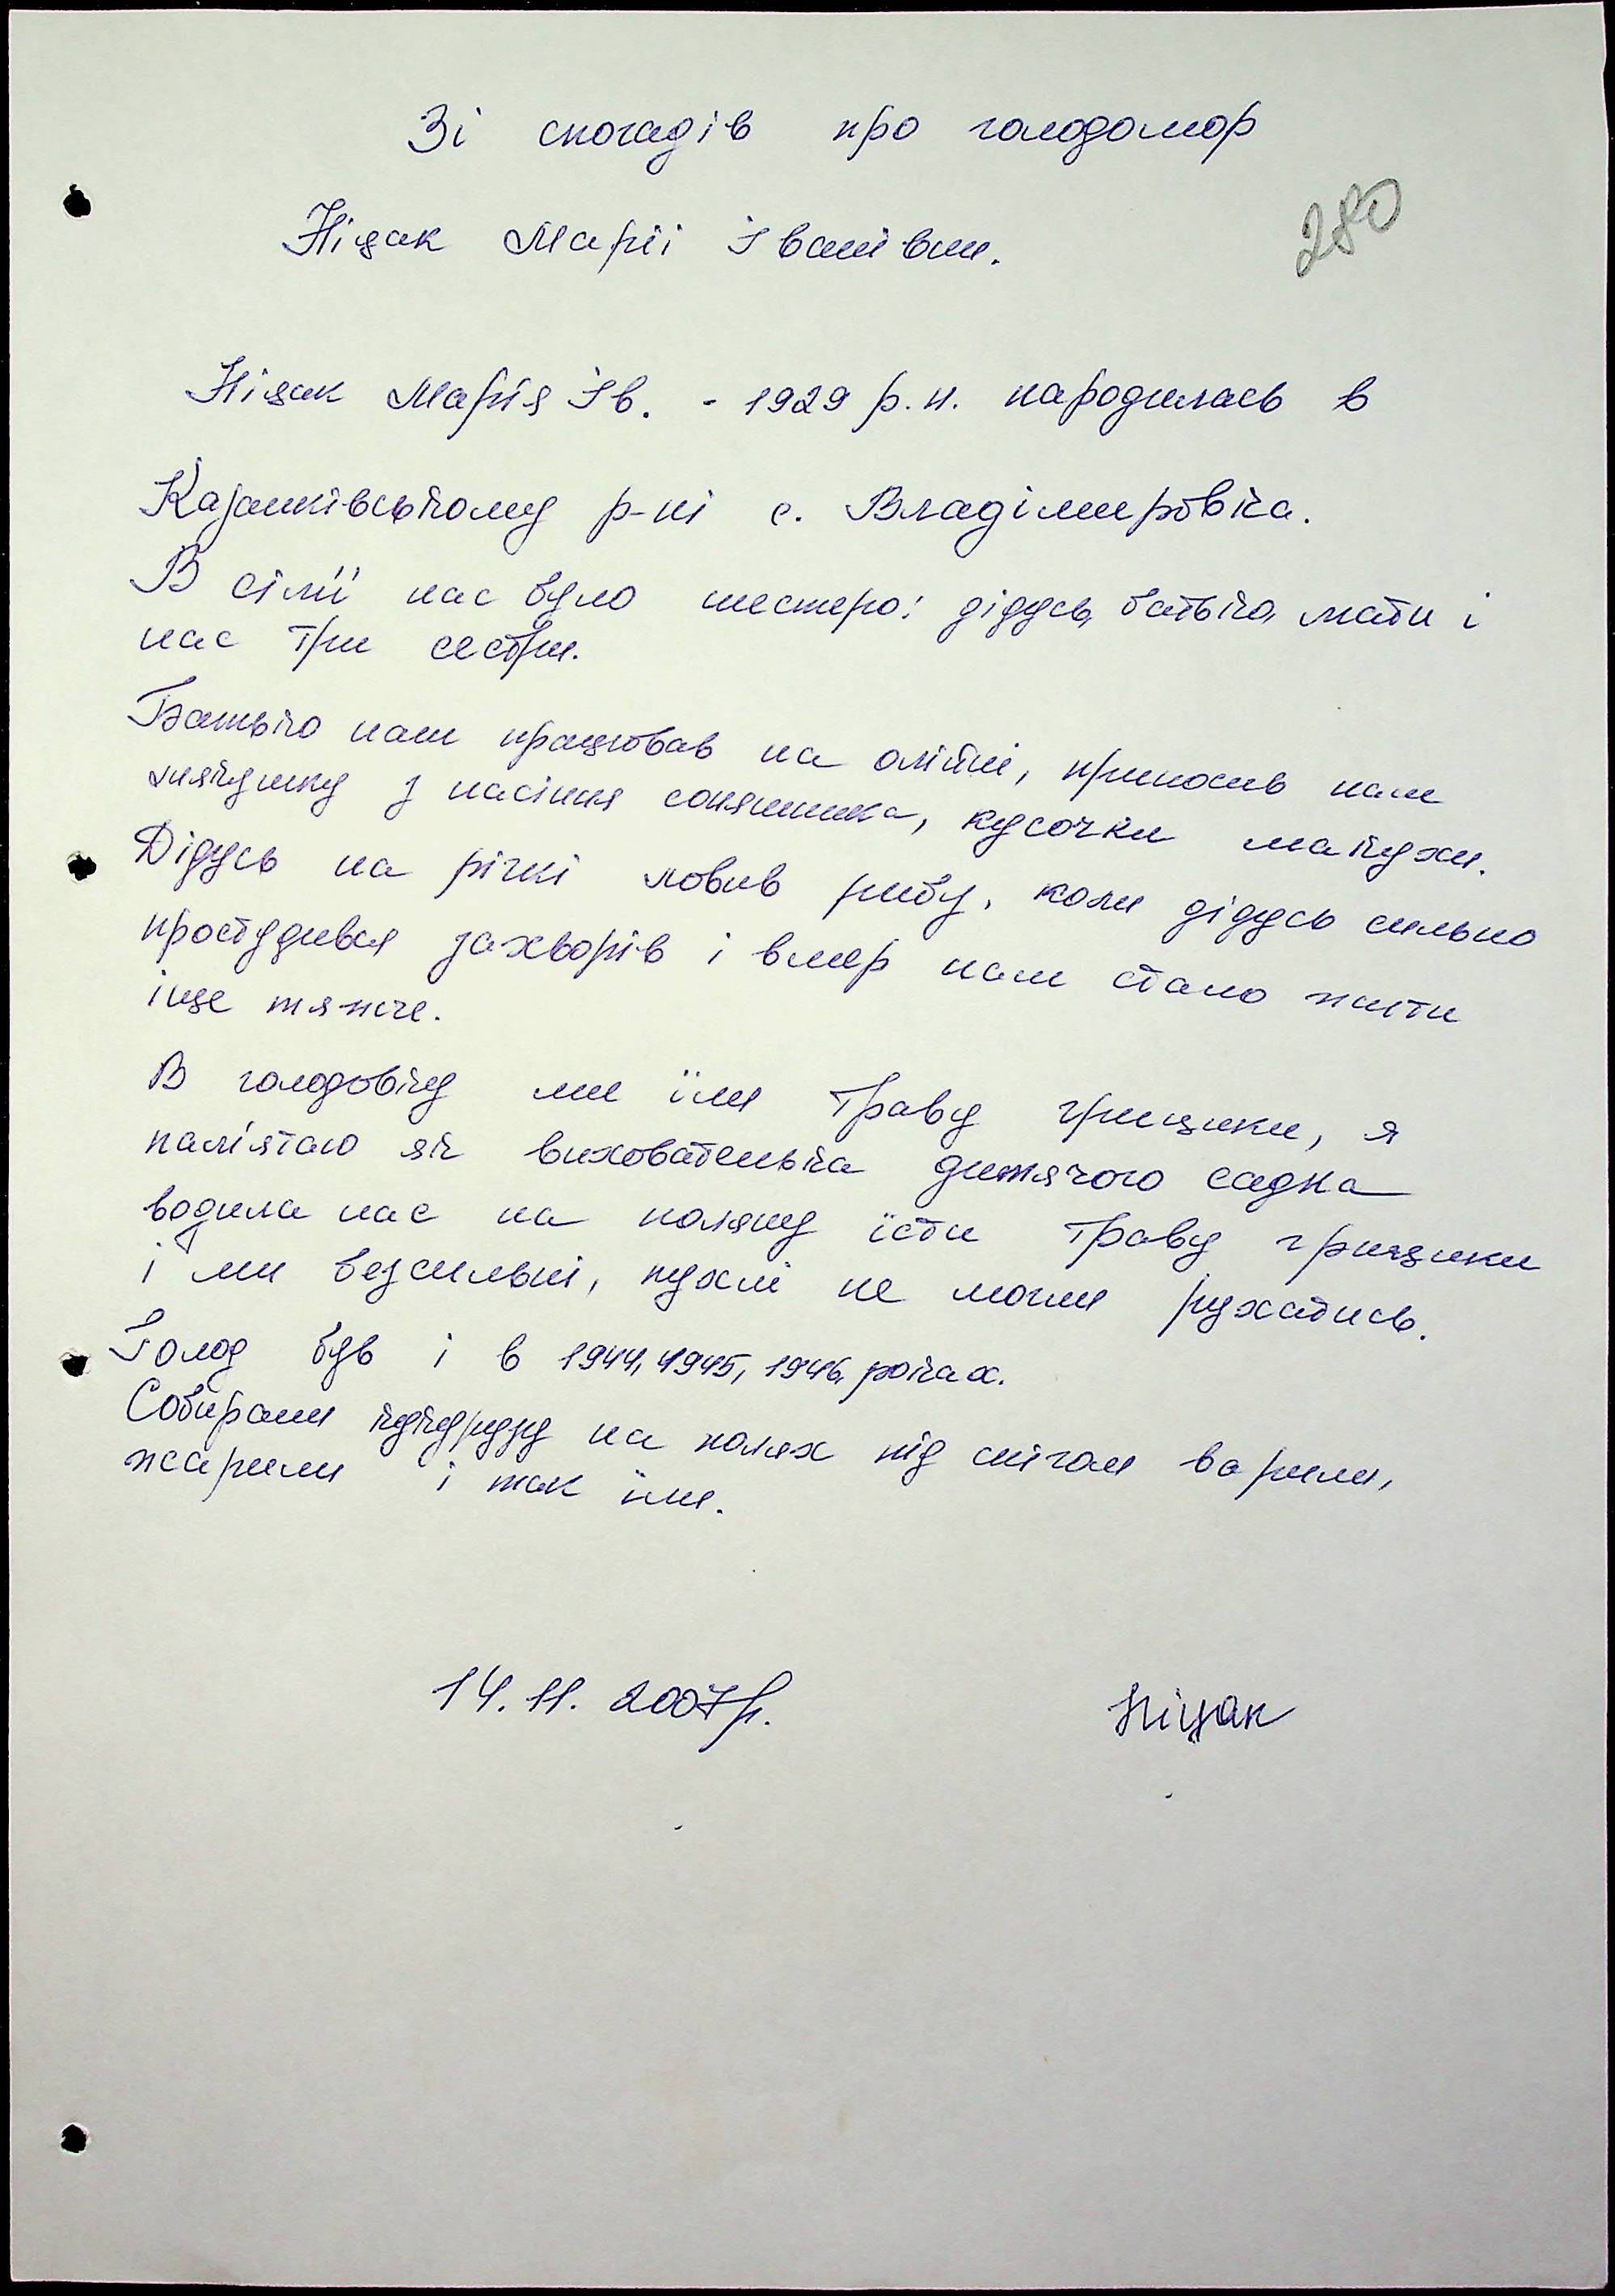 Зі спогадів про голодомор
280
Ніцак Марії Іванівни.
Ніцак Марія Ів. - 1929 р.н. народилась в
Казанківському р-ні с. Владімировка.
В сім'ї нас було шестеро: дідусь, батько, мати і
нас три сестри.
Батько наш працював на олійні, приносив нам
лузгу з насіння соняшника, кусочки макухи.
Дідусь на річкі ловив рибу, коли дідусь сильно
простудився захворів і вмер нам стало жити
іще тяжче.
В голодовку ми їли траву грицики, я
пам'ятаю як вихователька дитячого садка
водила нас на поляну їсти траву грицики
і ми безсильні, пухлі не могли рухатись.
Голод був і в 1944, 1945, 1946 роках.
Собирали кукурузу на полях під снігом варили,
жарили і так їли.
14.11.2007р.
Ніцак